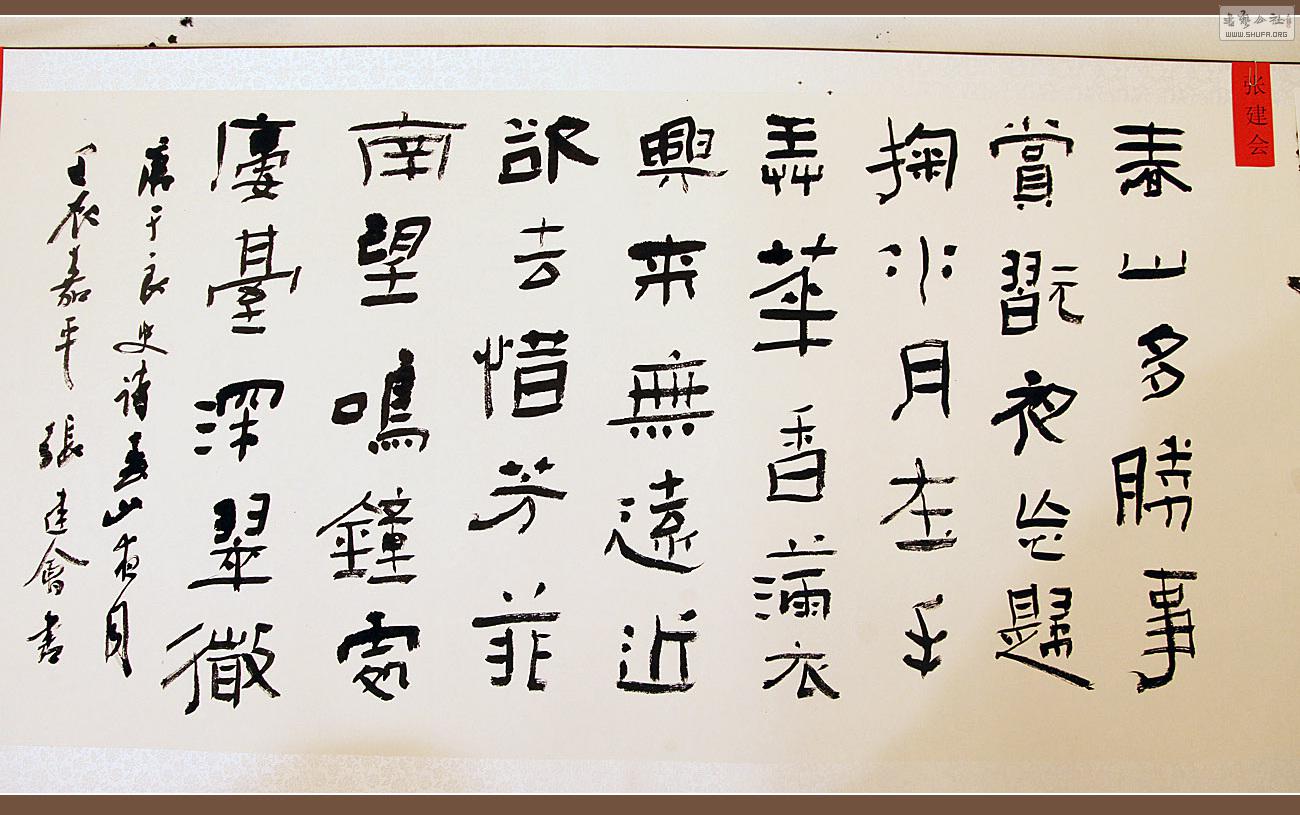 张建会
春山多勝事
賞翫夜忘歸
掬水月在手
弄華香滿衣
興来無遠近
欲去惜芳菲
南望鳴鐘處
廔臺深翠微
唐于良史詩春山夜月
壬辰嘉平張建會書
书艺公社
WWW.SHUFA.ORG